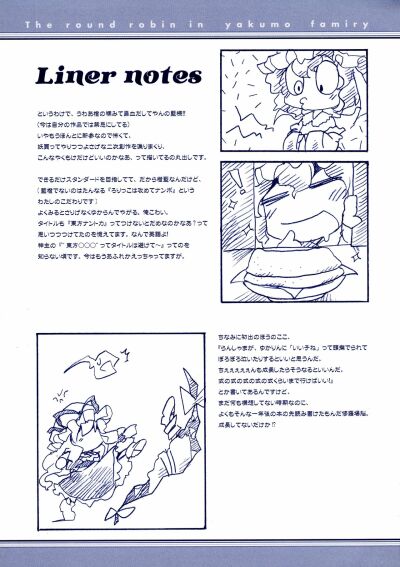 The round robin in yakumo famiry
Liner notes
というわけで、うわあ橙の頃みて鼻血だしてやんの藍橙!!
(今は自分の作品では禁忌にしてる)
いやもうほんとに新参なので怖くて、
妖買ってやりつつよさげな二次創作を漁りまくり、
こんなやくもけだけどいいのかなあ、って描いてるの丸出しです。
できるだけスタンダードを目指してて、だから橙藍なんだけど、
(藍橙でないのはたんなる『ろりっこは攻めてナンボ』という
わたしのこだわりです)
よくみるとさりげなくゆからんでやがる、俺こわい。
タイトル名『東方ナントカ』ってつけないとだめなのかなあ?って
思いつつつけてたのを憶えてます。なんで英語よ!
神主の『"東方○○○"ってタイトルは避けて~』ってのを
知らない頃です。今はもうあふれかえっちゃってますが。
ちなみに初出のほうのここ、
『らんしゃまが、ゆかりんに「いい子ね」って頭撫でられて
ぽろぽろ泣いたりするといいと思うんだ。
ちぇぇぇぇぇんも成長したらそうなるといいんだ。
式の式の式の式の式くらいまで行けばいい!』
とか書いてあるんですけど、
まだ何も構想してない時期なのに、
よくもそんな一年後の本の先読み書けたもんだ修羅場脳。
成長してないだけか?